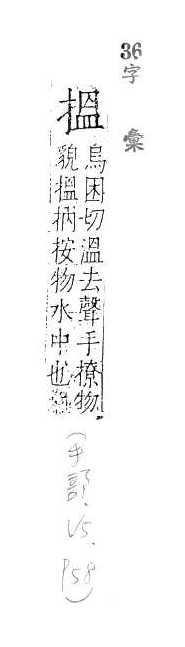 36
字彙
搵
烏困切溫去聲手撩物
貌搵抐按物水中也
(手部,V5,
P58)